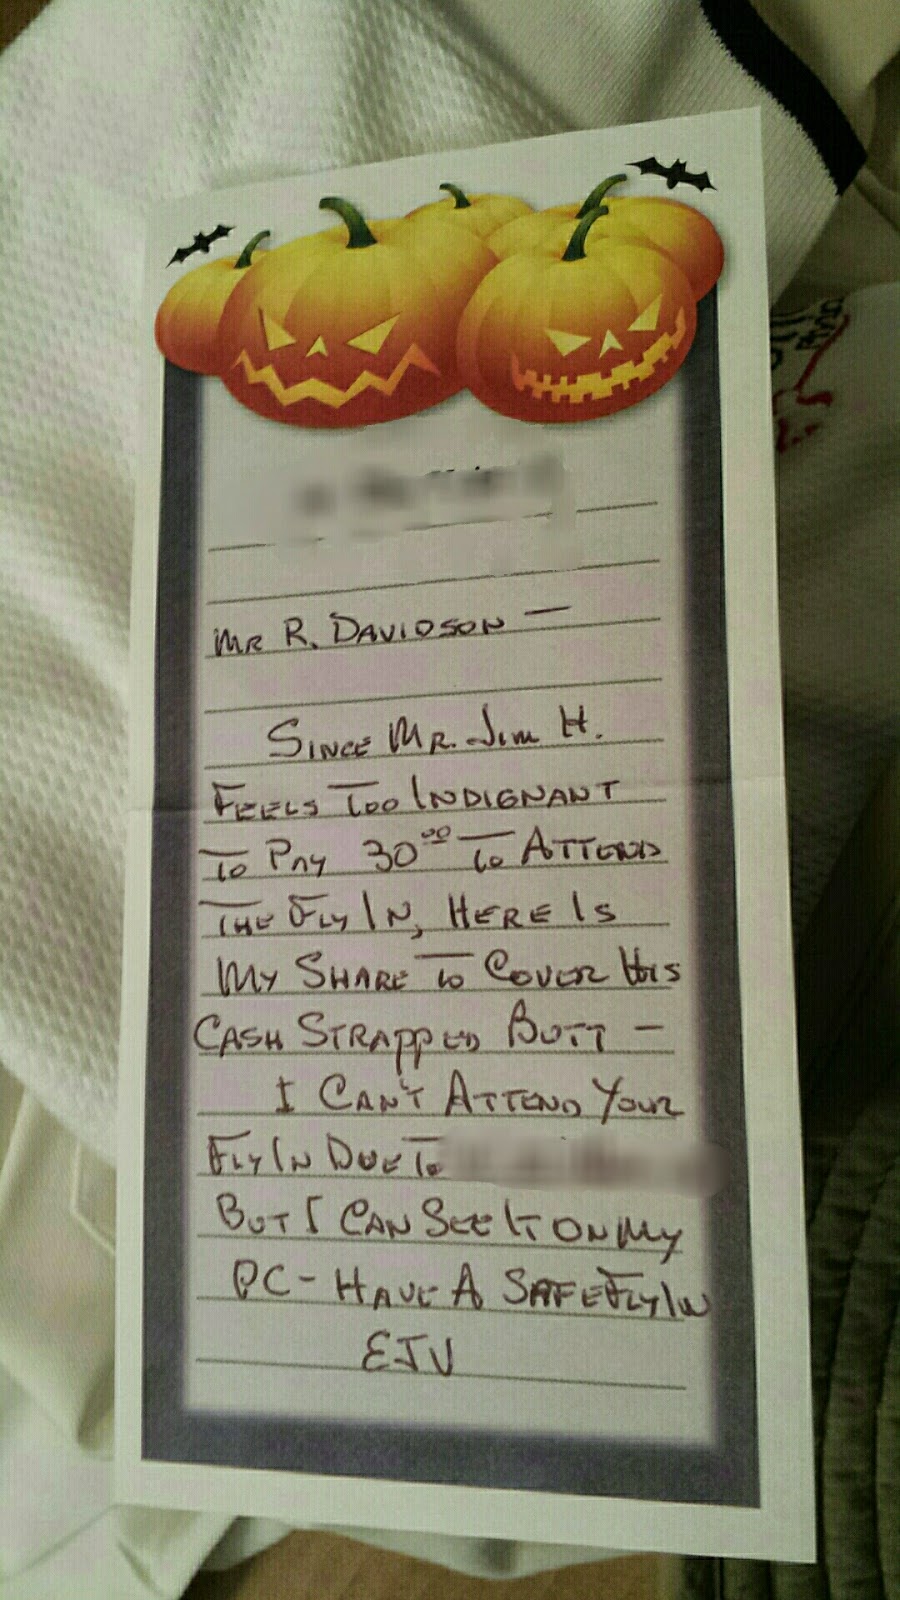 MR R. DAVIDSON —
SINCE MR. JIM H.
FEELS TOO INDIGNANT
TO PAY 30⁰⁰ TO ATTEND
THE FLY IN, HERE IS
MY SHARE TO COVER HIS
CASH STRAPPED BUTT —
I CAN'T ATTEND YOUR
FLY IN DUE TO
BUT I CAN SEE IT ON MY
PC - HAVE A SAFE FLY IN
EJV